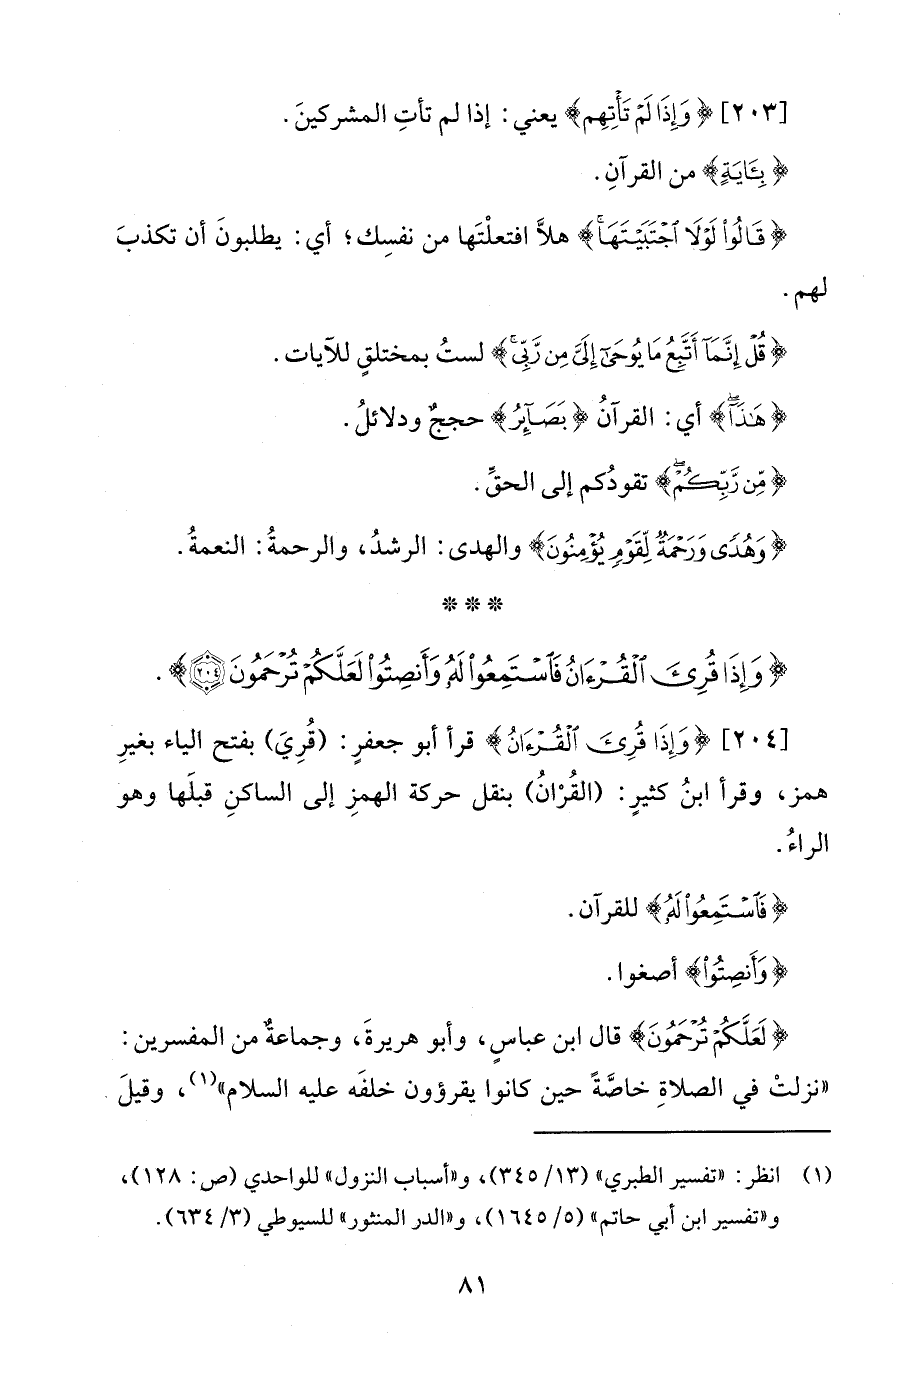 [٢٠٣] ﴿وَإِذَا لَمْ تَأْتِهِم﴾ يعني: إذا لم تأتِ المشركينَ.
﴿بِـَٔايَةٍ﴾ من القرآنِ.
﴿قَالُوا۟ لَوْلَا ٱجْتَبَيْتَهَا ۚ﴾ هلاَّ افتعلْتَها من نفسِك؛ أي: يطلبونَ أن تكذبَ
لهم.
﴿قُلْ إِنَّمَآ أَتَّبِعُ مَا يُوحَىٰٓ إِلَىَّ مِن رَّبِّى ۚ﴾ لستُ بمختلقٍ للآيات.
﴿هَـٰذَآ ۖ﴾ أي: القرآنُ ﴿بَصَآئِرُ﴾ حججٌ ودلائلُ.
﴿مِّن رَّبِّكُمْ ۖ﴾ تقودُكم إلى الحقِّ.
﴿وَهُدًى وَرَحْمَةٌ لِّقَوْمٍ يُؤْمِنُونَ﴾ والهدى: الرشدُ، والرحمةُ: النعمةُ.
* * *
﴿وَإِذَا قُرِئَ ٱلْقُرْءَانُ فَٱسْتَمِعُوا۟ لَهُۥ وَأَنصِتُوا۟ لَعَلَّكُمْ تُرْحَمُونَ ٢٠٤﴾.
[٢٠٤] ﴿وَإِذَا قُرِئَ ٱلْقُرْءَانُ﴾ قرأ أبو جعفرٍ: (قُرِيَ) بفتح الياء بغيرِ
همز، وقرأ ابنُ كثيرٍ: (القُرْانُ) بنقل حركة الهمزِ إلى الساكنِ قبلَها وهو
الراءُ.
﴿فَٱسْتَمِعُوا۟ لَهُۥ﴾ للقرآن.
﴿وَأَنصِتُوا۟﴾ أصغوا.
﴿لَعَلَّكُمْ تُرْحَمُونَ﴾ قال ابن عباسٍ، وأبو هريرةَ، وجماعةٌ من المفسرين:
«نزلتْ في الصلاةِ خاصَّةً حين كانوا يقرؤون خلفَه عليه السلام»(١)، وقيلَ
(١) انظر: «تفسير الطبري» (١٣/ ٣٤٥)، و«أسباب النزول» للواحدي (ص: ١٢٨)،
و«تفسير ابن أبي حاتم» (٥/ ١٦٤٥)، و«الدر المنثور» للسيوطي (٣/ ٦٣٤).
٨١